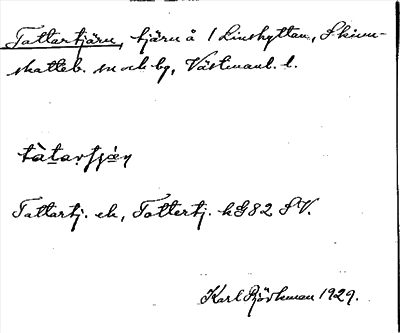 Tattartjärn, tjärn å 1 Linshyttan, Skinn-
skatteb. sn och bg, Västmanl. l.
tàtarʃæ̣ṇ
Tattartj. ek, Tottertj. hG82 SV.
Karl Björkman 1929.